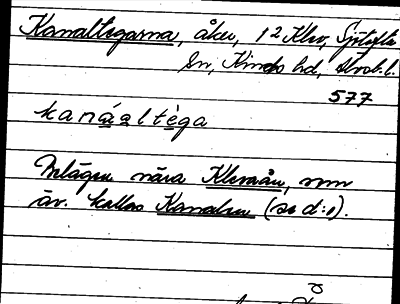 Kanaltegarna, åker, 1 2 Klev, Sjötofta
sn, Kinds hd, Älvsb. l.
577
kanáaltèga
Belägen nära Klevaån, som
äv. kallas Kanalen (se d:o).